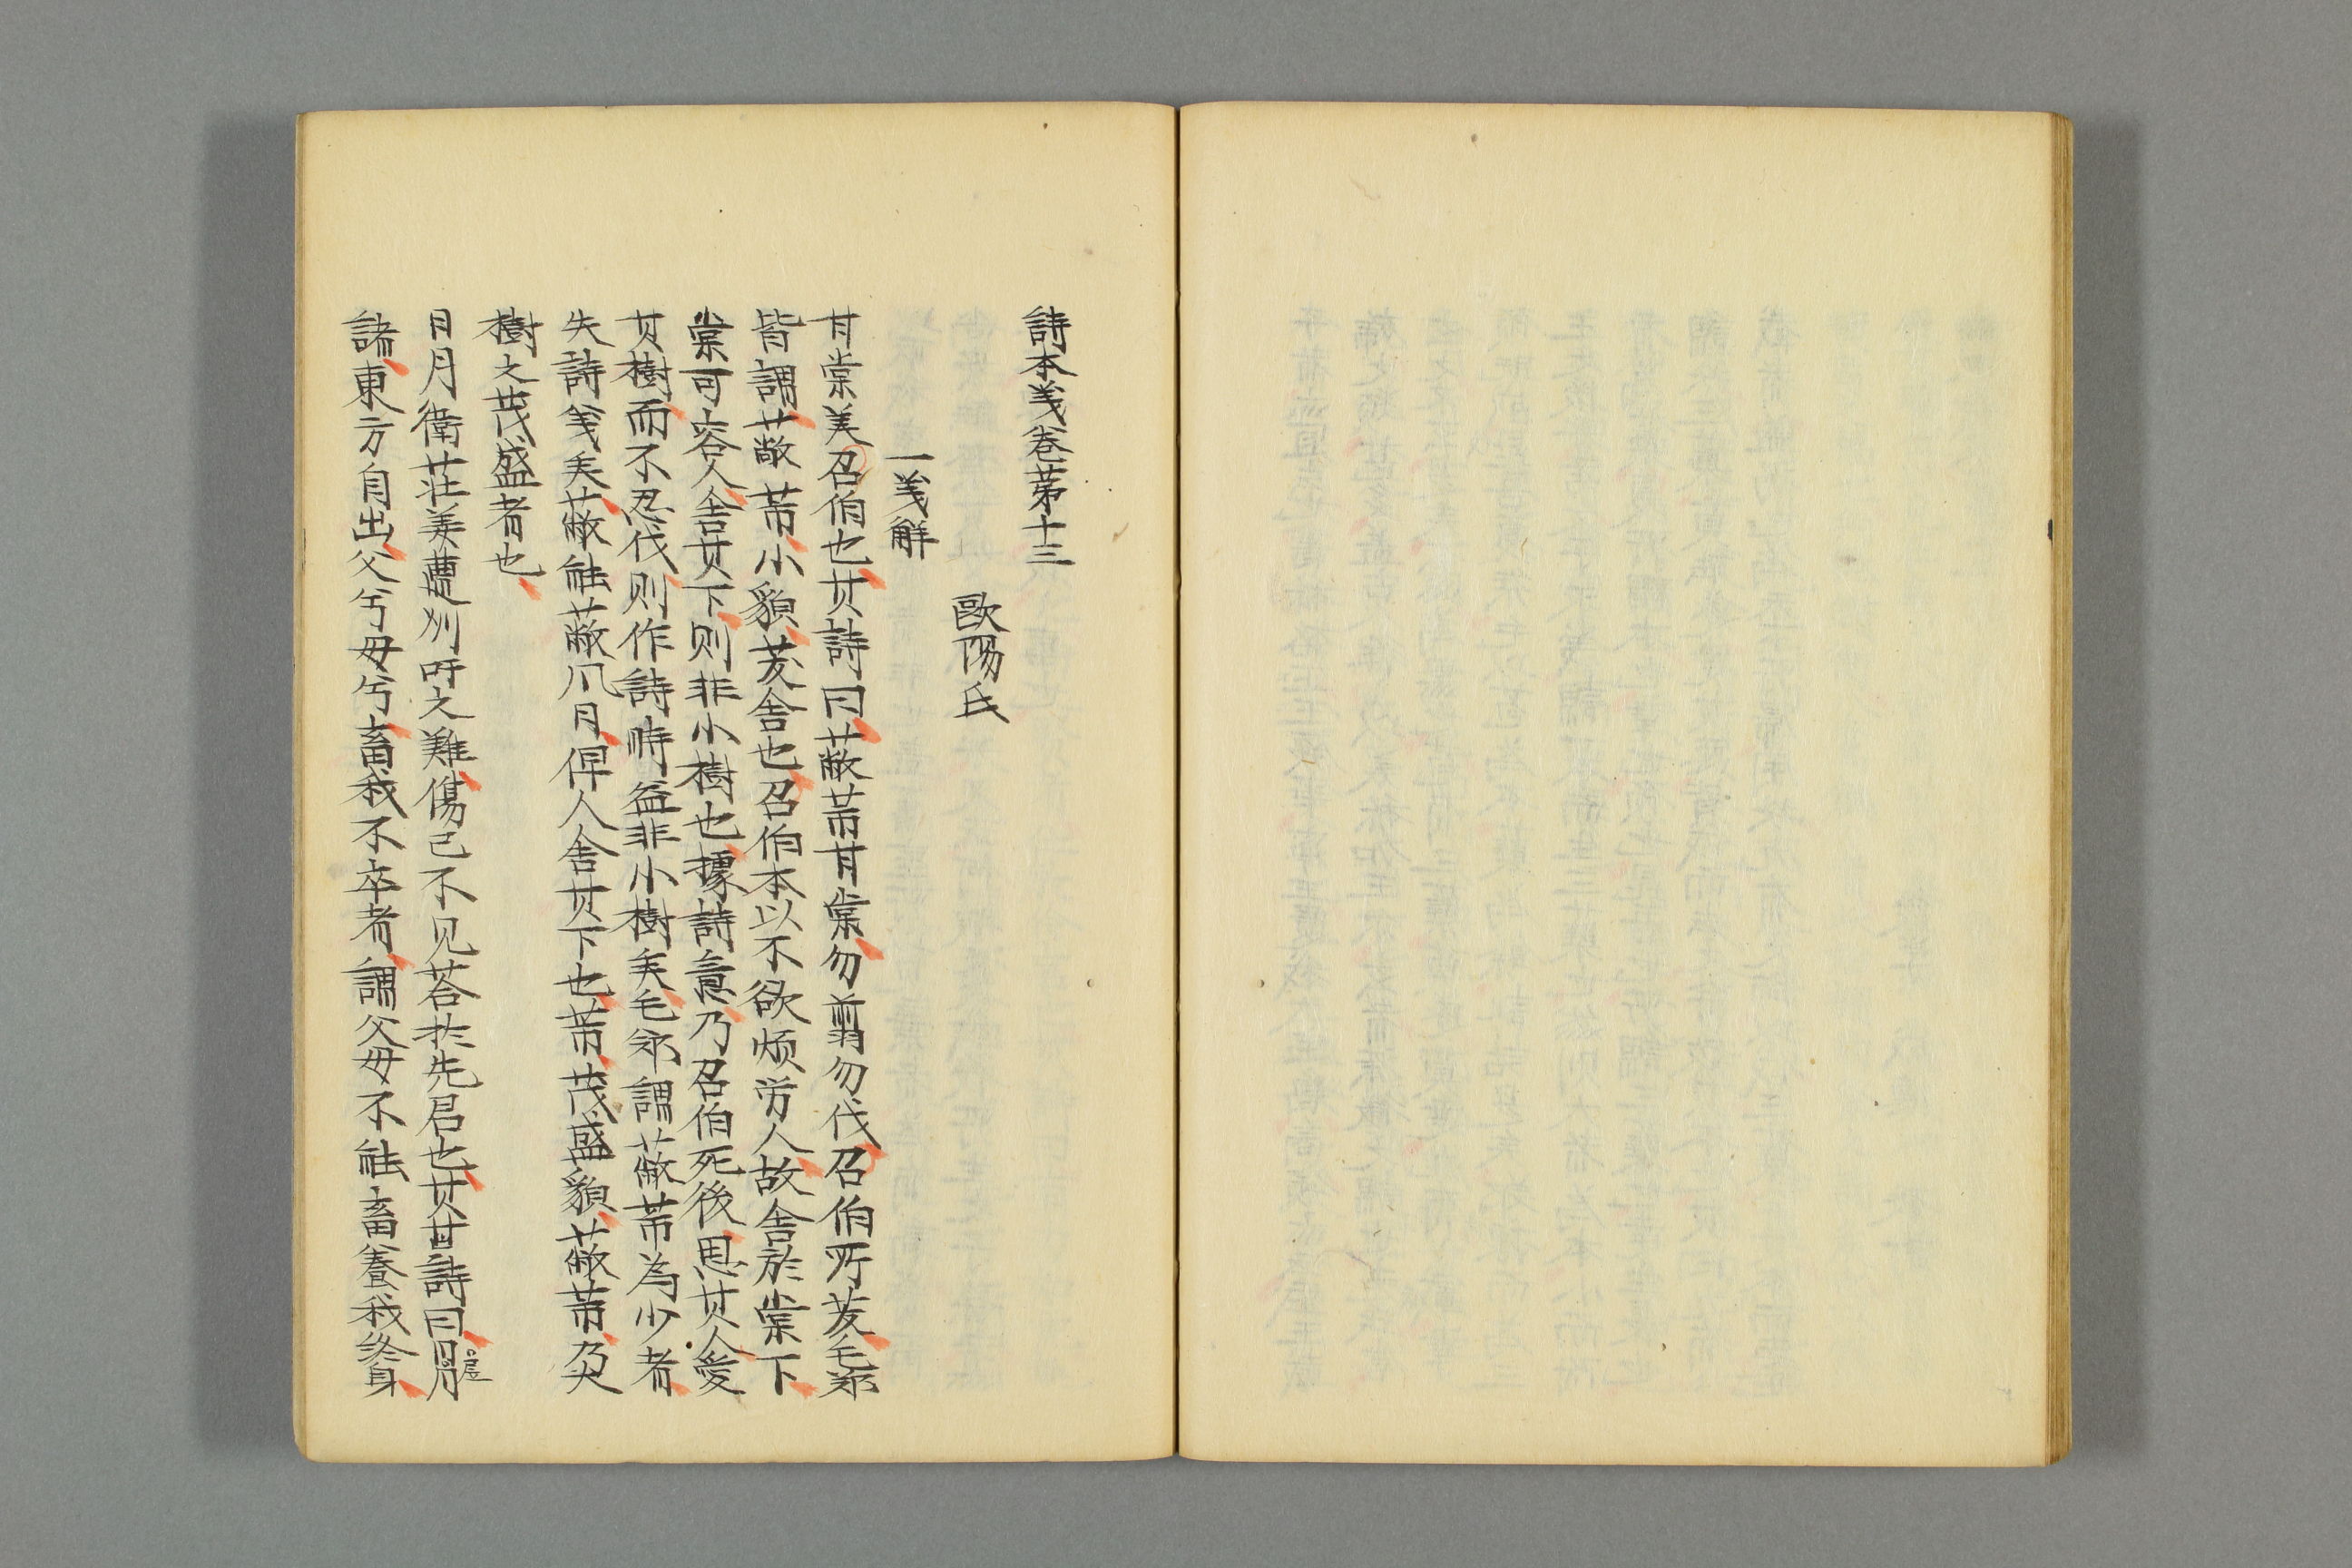 詩本義卷第十三
歐陽氏
一義解
甘棠美召伯也其詩曰蔽芾甘棠勿翦勿伐召伯所茇毛鄭
皆謂蔽芾小貌茇舍也召伯本以不欲煩労人故舍於棠下
棠可容人舍其下則非小樹也據詩意乃召伯死後思其人愛
其樹而不忍伐則作詩時益非小樹矣毛鄭謂蔽芾為少者
失詩義矣蔽能蔽風日俾人舍其下也芾茂盛貌蔽芾乃大
樹之茂盛者也
日月衛荘姜遭州吁之難傷己不見荅於先君也其詩曰日居月
諸東方自出父兮母兮畜我不卒者謂父母不能畜養我終身